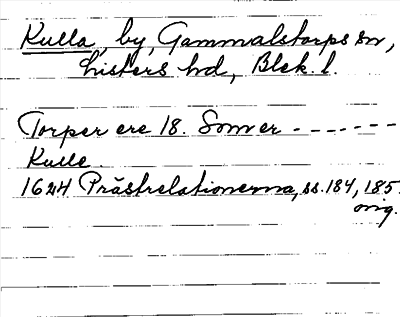 Kulla, by, Gammalstorps sn,
Listers hd, Blek. l.
Torper ere 18. Som er - - - - - - -
Kulle.
1624 Prästrelationerna, ss. 184, 185.
orig.